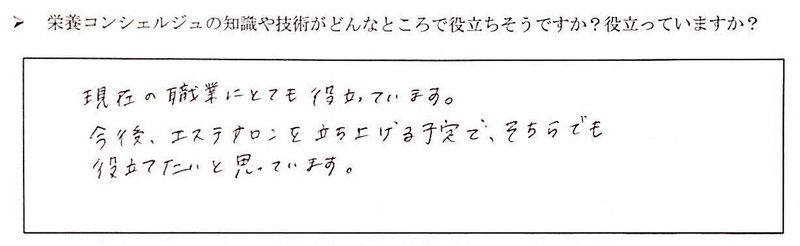 ➢ 栄養コンシェルジュの知識や技術がどんなところで役立ちそうですか？役立っていますか？
現在の職業にとても役立っています。
今後、エステサロンを立ち上げる予定で、そちらでも
役立てたいと思っています。